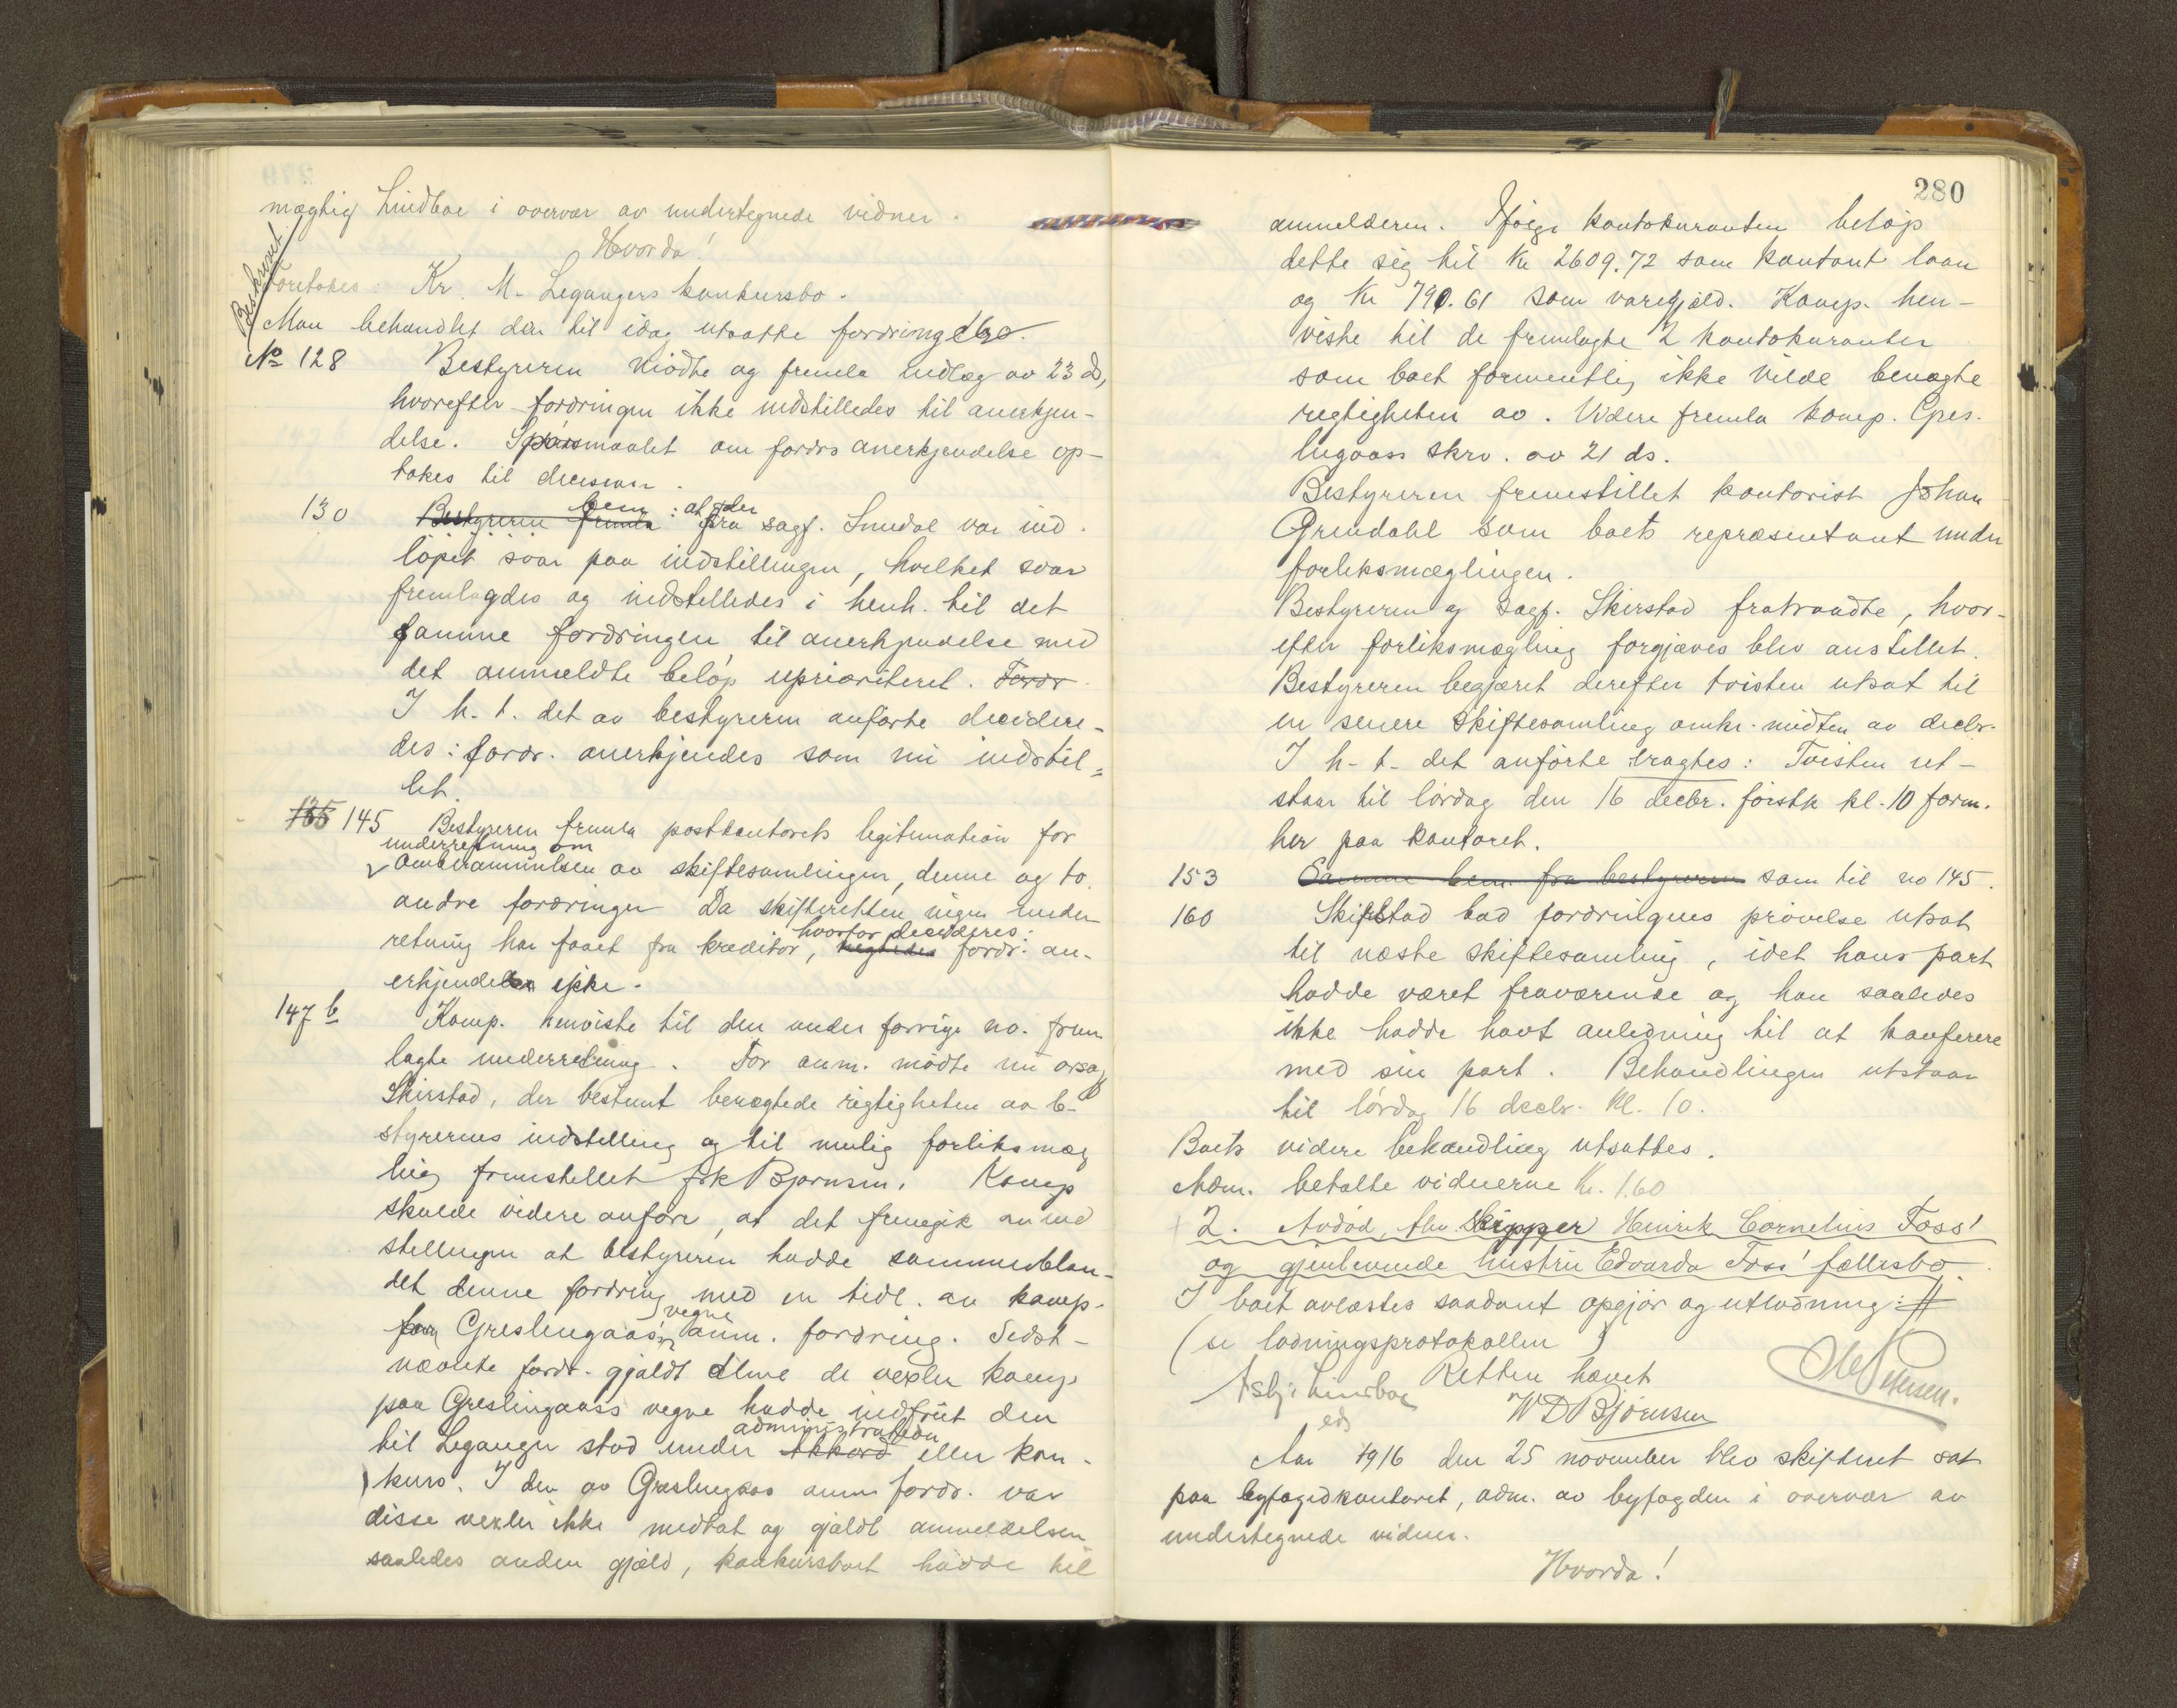 mægtig Lindboe i overvær av undertegnede vidner.
Hvorda!
Beskrevet
Foretokes: Kr. M. Legangers konkursbo.
Man behandlet den til idag utsatte fordring
No 128 Bestyreren mødte og fremla indlæg av 23 ds,
hvorefter fordringen ikke indstilledes til anerkjen-
delse. Spørsmaalet om fordrs anerkjendelse op-
tokes til decision.
130 Bestyreren fremla bem: at der fra sagf. Smedal var ind-
løpet svar paa indstillingen, hvilket svar
fremlagdes og indstilledes i henh. til det
samme fordringen til anerkjendelse med
det anmeldte beløp uprioriteret. Fordr
I h. t. det av bestyreren anførte decidere-
des: fordr. anerkjendes som nu indstil-
let.
135 145 Bestyreren fremla postkontorets legitimation for
underretning om
omberammelsen av skiftesamlingen, denne og to
andre fordringer Da skifteretten ingen under
retning har faaet fra kreditor, hvorfor decideres: fordr. an-
erkjendes ikke.
147 b Komp. henviste til den under forrige no. frem
lagte underretning. For anm. mødte nu orsagf
Skirstad, der bestemt benægtede rigtigheten av be-
styrerens indstilling og til mulig forliksmæg
ling fremstillet frk Bjørnsen. Komp
skulde videre anføre, at det fremgik av ind
stillingen at bestyreren hadde sammenblan-
det denne fordring med en tidl. av komp.
paa Greslingaas's vegne anm. fordring. Sidst-
nævnte fordr. gjaldt alene de veksler komp
paa Greslingaass vegne hadde indfriet den
til Leganger stod under akkord administration eller kon-
kurs. I den av Greslingaas anm fordr. var
disse veksler ikke medtat og gjaldt anmeldelsen
saaledes anden gjæld, konkursboet hadde til
280
anmelderen. Ifølge kontokuranten beløp
dette sig til Kr 2609.72 som kontant laan
og Kr 790.61 som varegjæld. Komp. hen-
viste til de fremlagte 2 kontokuranter
som boet formentlig ikke vilde benægte
rigtigheten av. Videre fremla komp. Gres-
lingaass skrv. av 21 ds.
Bestyreren fremstillet kontorist Johan
Grendahl som boets repræsentant under
forliksmæglingen.
Bestyreren og sagf. Skirstad fratraadte, hvor-
efter forliksmægling forgjæves blev anstillet.
Bestyreren begjæret derefter tvisten utsat til
en senere skiftesamling omkr. midten av decbr.
I h. t. det anførte eragtes: Tvisten ut-
staar til lørdag den 16 decbr. førstk kl. 10 form.
her paa kontoret.
153 Samme bem. fra bestyreren som til no 145.
160 Skirstad bad fordringens prøvelse utsat
til næste skiftesamling, idet hans part
hadde været fraværende og han saaledes
ikke hadde havt anledning til at konferere
med sin part. Behandlingen utstaar
til lørdag 16 decbr. kl. 10.
Boets videre behandling utsattes.
Adm. betalte vidnerne Kr. 1.60
2. Avdød skipper Henrik Cornelius Foss'
og gjenlevende hustru Edvarda Foss' fællesbo.
I boet avlæstes saadant opgjør og utlodning: #
(se lodningsprotokollen)
Retten hævet
Asbj. Lindboe W D Bjørnsen
Aar 1916 den 25 november blev skifteret sat
paa byfogedkontoret, adm. av byfogden i overvær av
undertegnede vidner.
Hvorda!